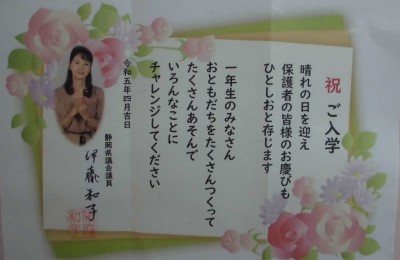 祝 ご入学
晴れの日を迎え
保護者の皆様のお慶びも
ひとしおと存じます
一年生のみなさん
おともだちをたくさんつくって
たくさんあそんで
いろんなことに
チャレンジしてください
令和五年四月吉日
静岡県議会議員
伊藤和子